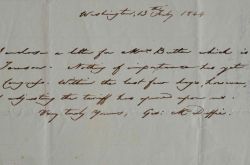 Washington, 13th July, 1844
I enclose a letter for Mrs Butler which is
Nothing of importance has yet
Congress. Within the last few days, however,
adjusting the tariff has
Very truly yours, Geo: McDuffie